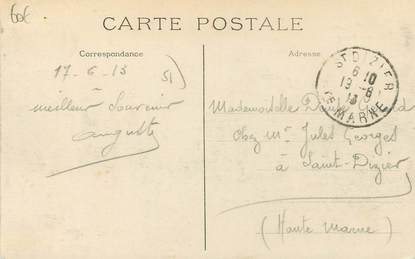 60€
CARTE POSTALE
Correspondance
Adresse
17-6-13
51
meilleur Souvenir
Auguste
ST DIZIER
6 10
13
Hte MARNE
Mademoiselle
chez Mr Jules Georges
à Saint-Dizier
(Haute Marne)